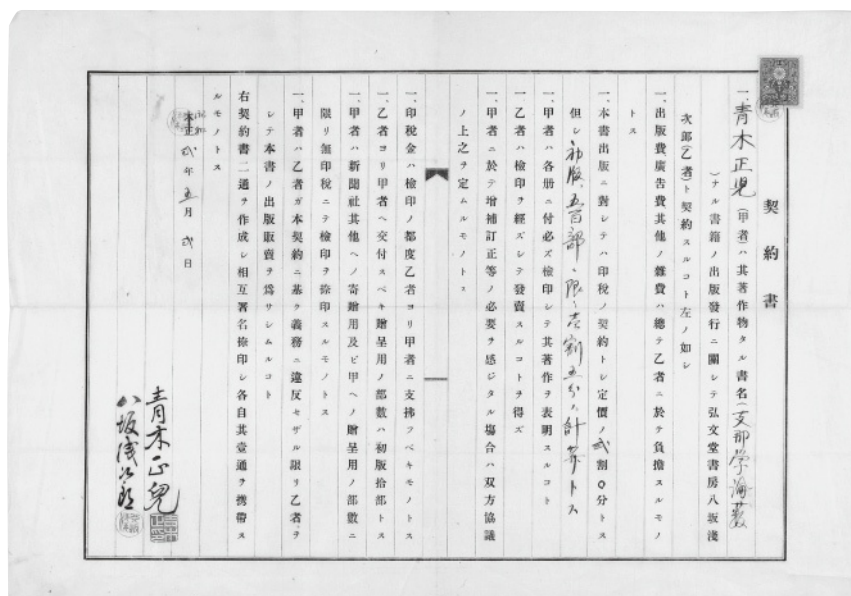 契約書
一、青木正児(甲者)ハ其著作物タル書名(支那学論薮
)ナル書籍ノ出版發行ニ關シテ弘文堂書房八坂淺
次郎(乙者)ト契約スルコト左ノ如シ
一、出版費廣告費其他ノ雜費ハ總テ乙者ニ於テ負擔スルモノ
トス
一、本書出版ニ對シテハ印税ノ契約トシ定價ノ弐割〇分トス
但シ初版、五百部ヽ限ヽ壱割五分ノ計算トス
一、甲者ハ各册ニ付必ズ檢印シテ其著作ヲ表明スルコト
一、乙者ハ檢印ヲ經ズシテ發賣スルコトヲ得ズ
一、甲者ニ於テ增補訂正等ノ必要ヲ感ジタル塲合ハ双方協議
ノ上之ヲ定ムルモノトス
一、印税金ハ檢印ノ都度乙者ヨリ甲者ニ支拂フベキモノトス
一、乙者ヨリ甲者ヘ交付スベキ贈呈用ノ部數ハ初版拾部トス
一、甲者ハ新聞社其他ヘノ寄贈用及ビ甲ヘノ贈呈用ノ部數ニ
限リ無印税ニテ檢印ヲ捺印スルモノトス
一、甲者ハ乙者ガ本契約ニ基ヲ義務ニ違反セザル限リ乙者ヲ
シテ本書ノ出版販賣ヲ爲サシムルコト
右契約書二通ヲ作成シ相互署名捺印シ各自其壹通ヲ携帶ス
ルモノトス
昭和
大正弐年五月弐日
青木正兒
八坂浅次郎